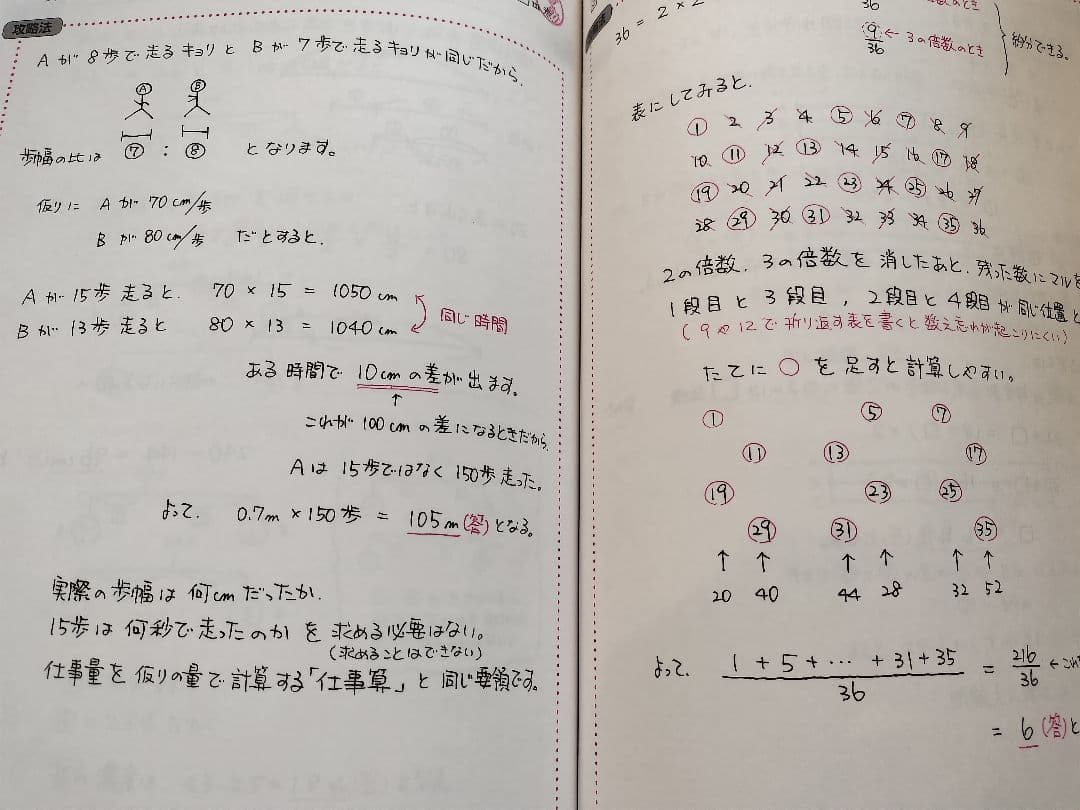 攻略法
Aが8歩で走るキョリとBが7歩で走るキョリが同じだから、
A B
歩幅の比は ⑦ : ⑧ となります。
仮りに Aが70cm/歩
Bが80cm/歩 だとすると、
Aが15歩走ると、 70 × 15 = 1050 cm
Bが13歩走ると 80 × 13 = 1040 cm
同じ時間
ある時間で 10cmの差が出ます。
↑
これが100cmの差になるときだから、
Aは15歩ではなく150歩走った。
よって、 0.7m × 150歩 = 105m(答)となる。
実際の歩幅は何cmだったか、
15歩は何秒で走ったのかを求める必要はない。
(求めることはできない)
仕事量を仮りの量で計算する「仕事算」と同じ要領です。
36 = 2 × 2
36
のとき
9/36 ← 3の倍数のとき
約分できる。
表にしてみると、
① 2 3 4 ⑤ 6 ⑦ 8 9
10 ⑪ 12 ⑬ 14 15 16 ⑰ 18
⑲ 20 21 22 ㉓ 24 ㉕ 26 27
28 ㉙ 30 ㉛ 32 33 34 ㉟ 36
2の倍数、3の倍数を消したあと、残った数にマルを
1段目と3段目、2段目と4段目が同じ位置と
(9や12で折り返す表を書くと数え忘れが起こりにくい)
たてに ○ を足すと計算しやすい。
① ⑤ ⑦
⑪ ⑬ ⑰
⑲ ㉓ ㉕
㉙ ㉛ ㉟
↑ ↑ ↑ ↑ ↑ ↑
20 40 44 28 32 52
よって、 1 + 5 + … + 31 + 35 / 36 = 216/36 ← これ
= 6 (答)と